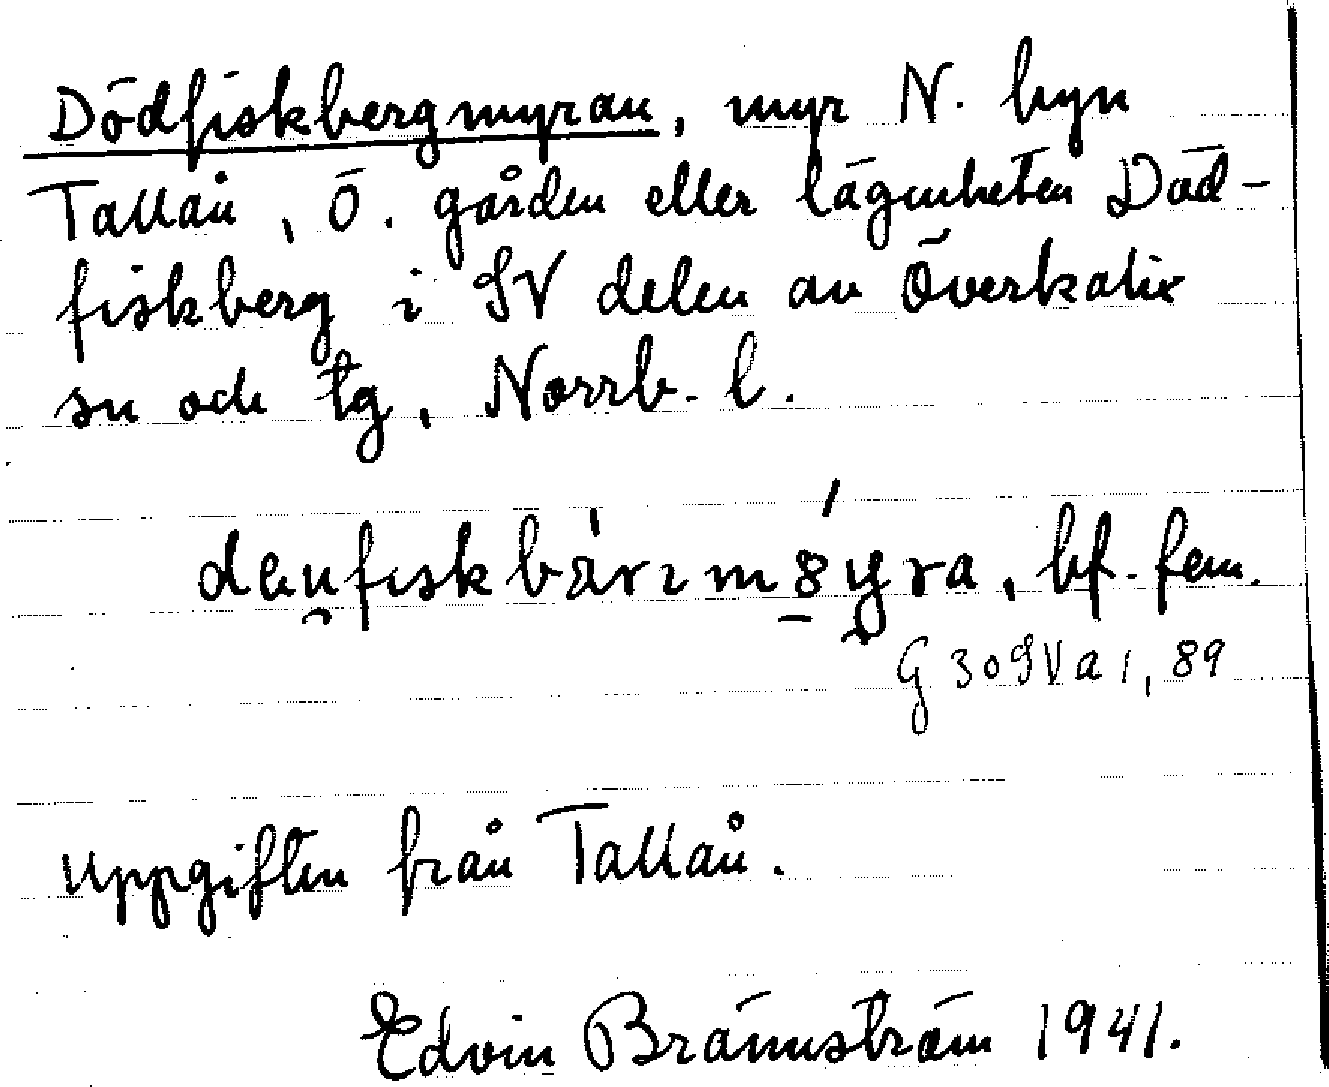 Dödfiskbergmyran, myr N. byn
Tallån, Ö. gården eller lägenheten Död-
fiskberg i SV delen av Överkalix
sn och tg, Norrb. l.
bf. fem.
G 309 Va 1, 89
Uppgiften från Tallån.
Edvin Brännström 1941.